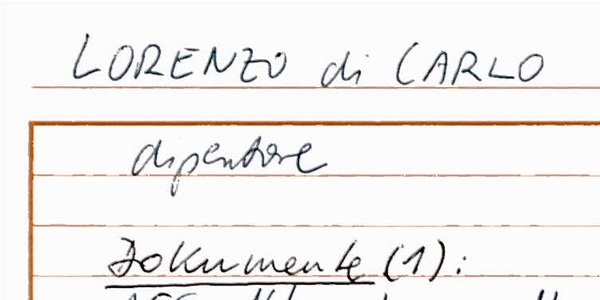 LORENZO di CARLO
dipentore
Dokumente (1):